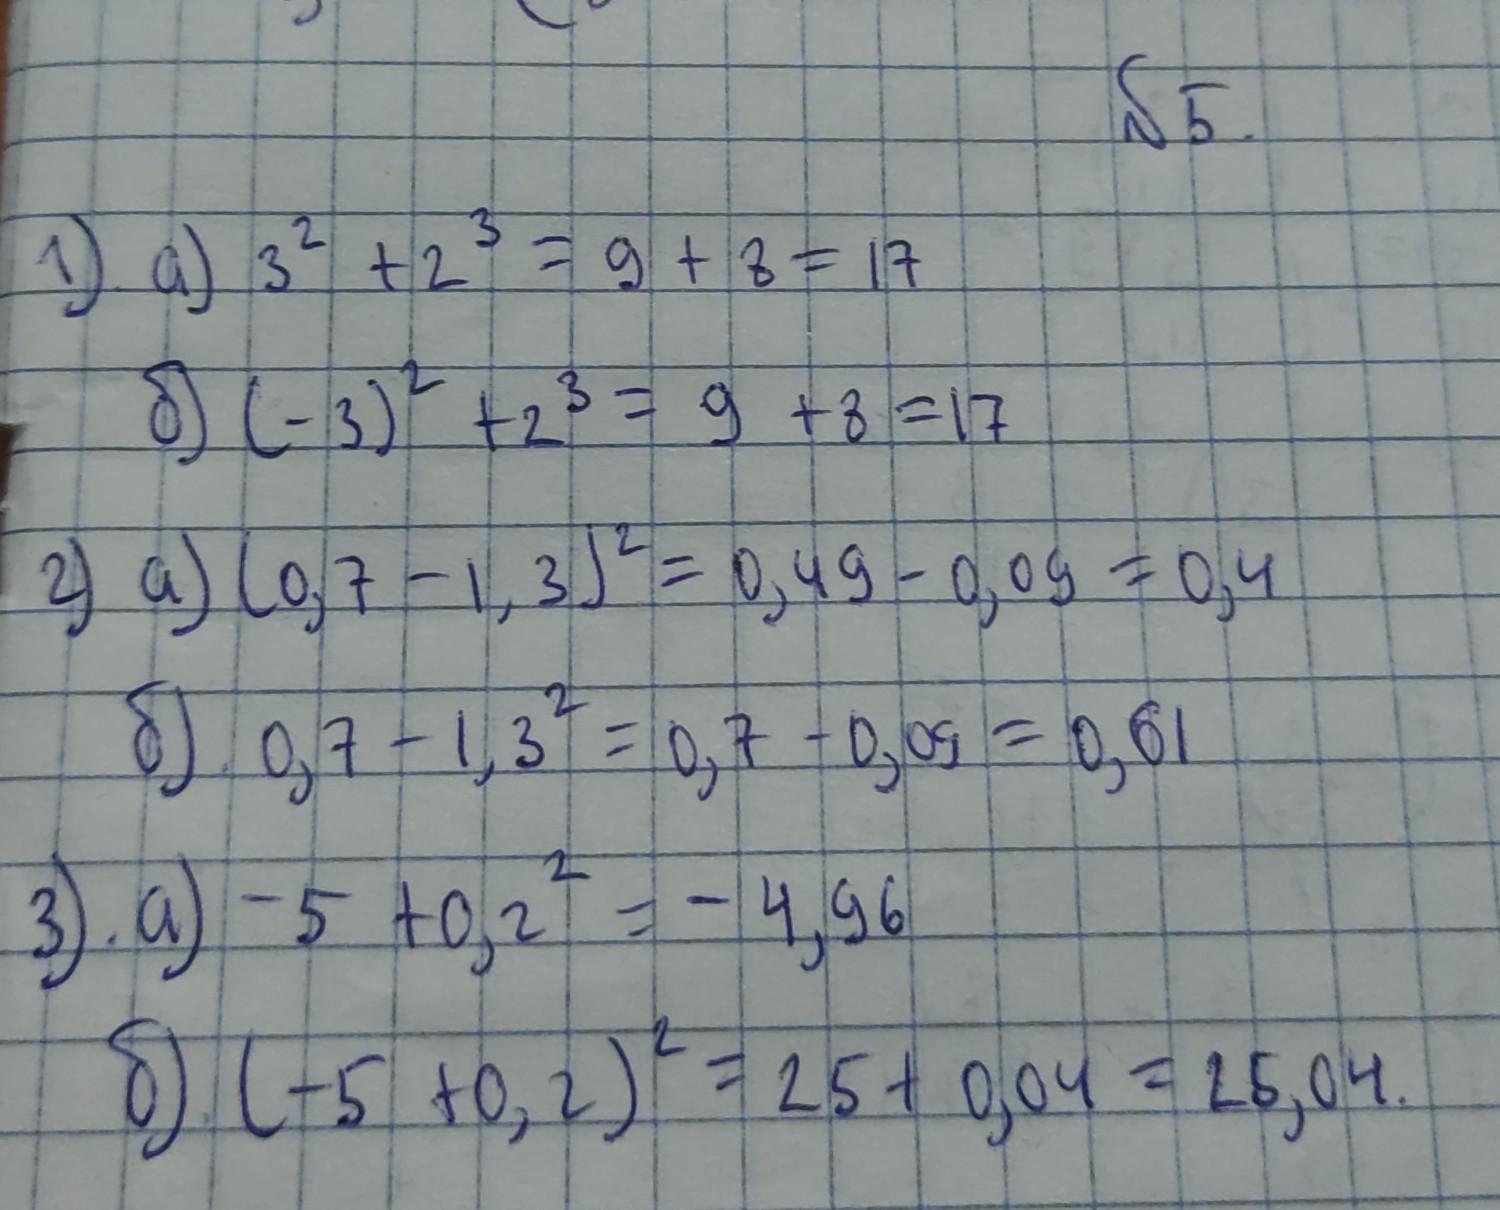 №5.
1). а) 3² + 2³ = 9 + 8 = 17
б) (-3)² + 2³ = 9 + 8 = 17
2) а) (0,7 - 1,3)² = 0,49 - 0,09 = 0,4
б). 0,7 - 1,3² = 0,7 - 0,09 = 0,61
3). а) -5 + 0,2² = -4,96
б). (-5 + 0,2)² = 25 + 0,04 = 25,04.